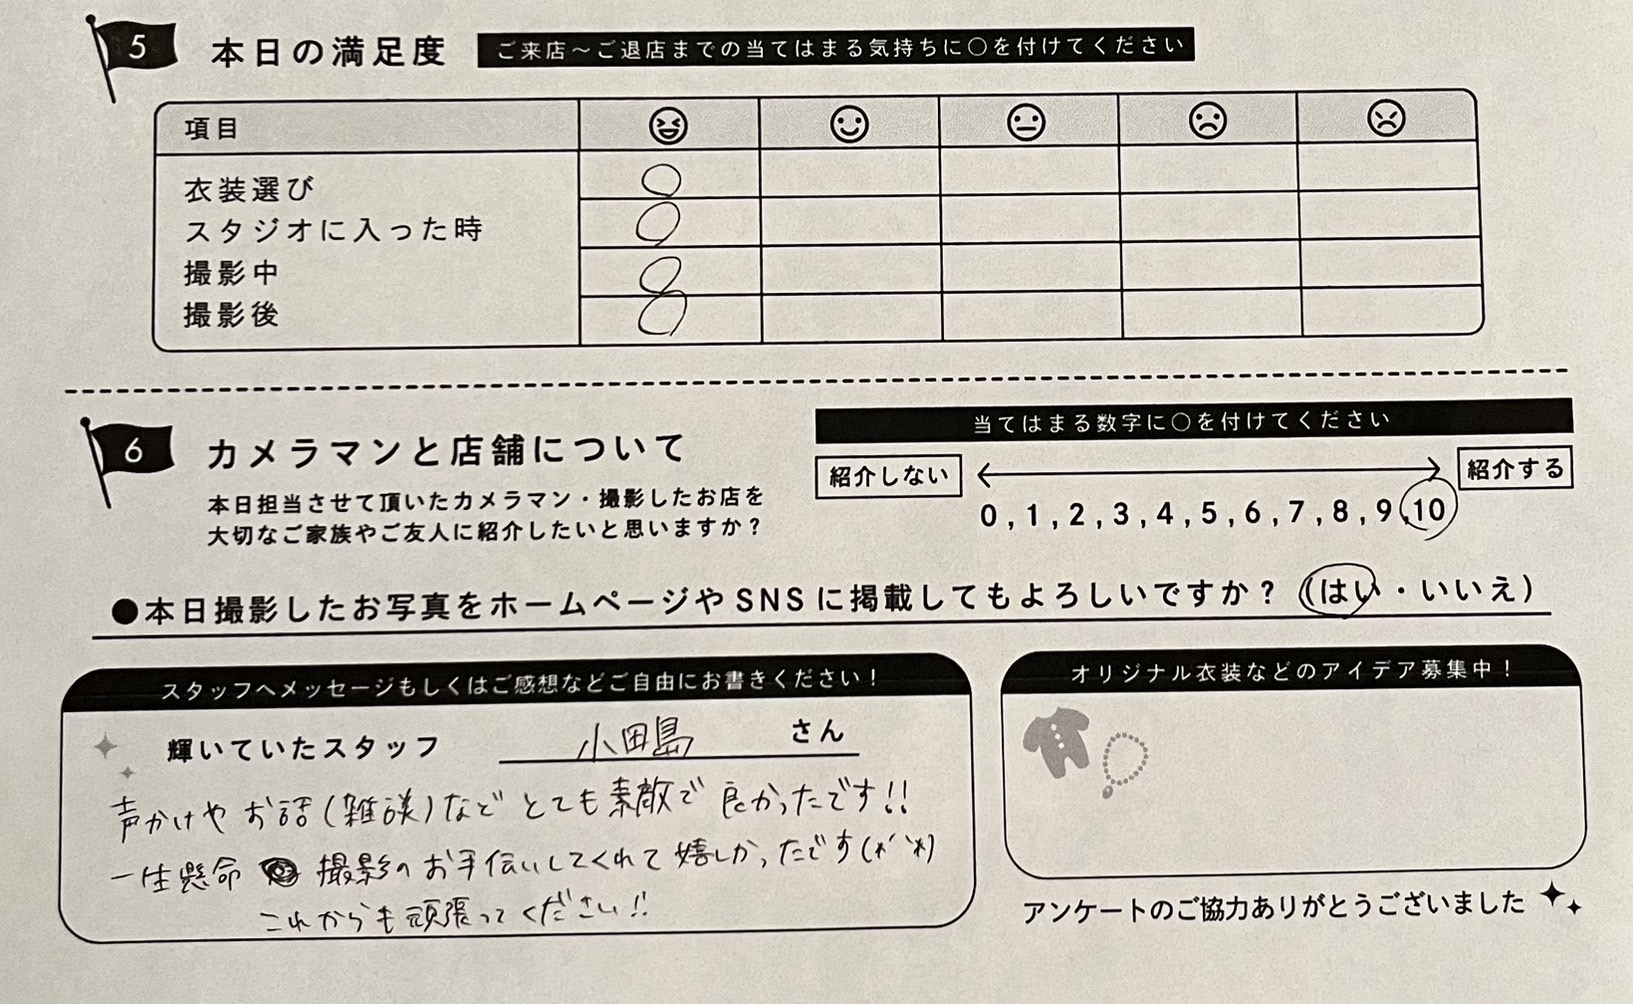 5 本日の満足度 ご来店～ご退店までの当てはまる気持ちに○を付けてください
項目
衣装選び
スタジオに入った時
撮影中
撮影後
6 カメラマンと店舗について
本日担当させて頂いたカメラマン・撮影したお店を
大切なご家族やご友人に紹介したいと思いますか？
当てはまる数字に○を付けてください
紹介しない 紹介する
0,1,2,3,4,5,6,7,8,9,10
●本日撮影したお写真をホームページやSNSに掲載してもよろしいですか？（はい・いいえ）
スタッフへメッセージもしくはご感想などご自由にお書きください！
輝いていたスタッフ 小田島 さん
声かけや お話（雑談）など とても素敵で 良かったです!!
一生懸命 撮影の お手伝いしてくれて 嬉しかったです
これからも頑張ってください!!
オリジナル衣装などのアイデア募集中！
アンケートのご協力ありがとうございました